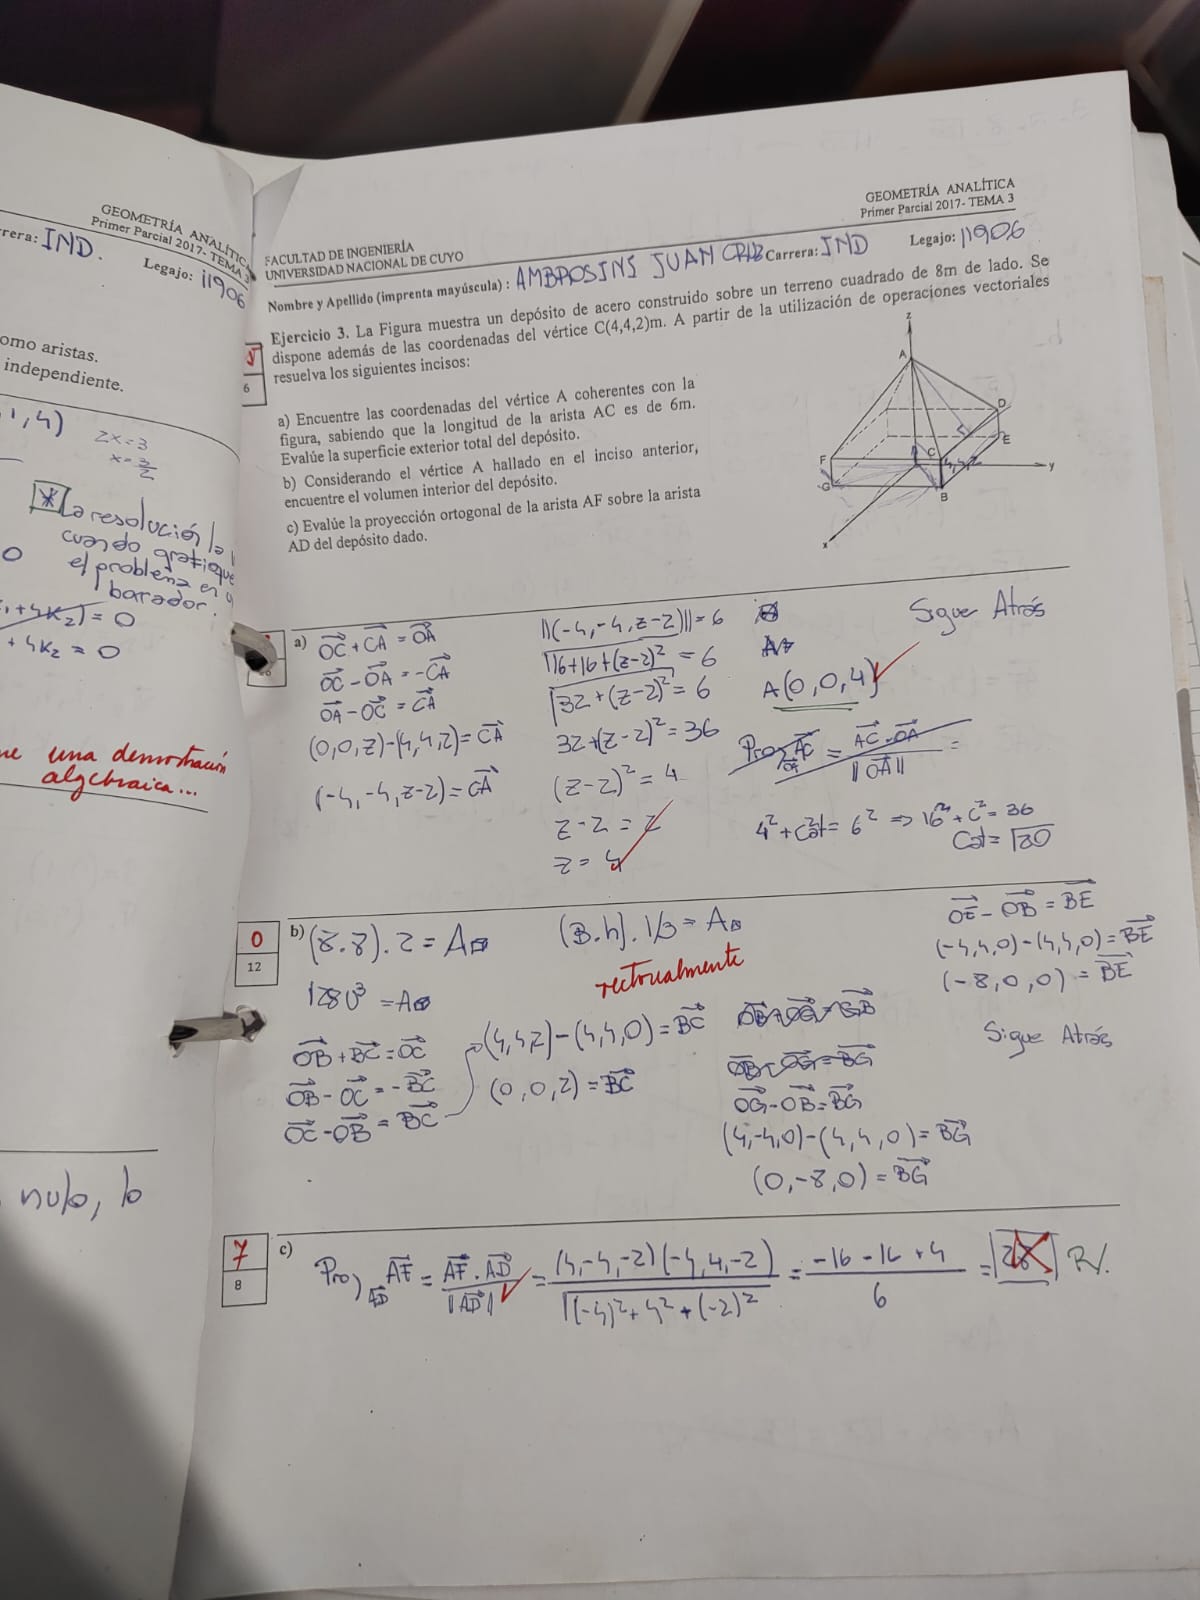 GEOMETRÍA ANALÍTICA
Primer Parcial 2017- TEMA 3
rrera: IND.
Legajo: 11906
omo aristas.
independiente.
1,4)
2x=3
x=3/2
* La resolución la
cuando grafique
el problema en
borrador.
+4K2) = 0
+ 4K2 = 0
ne una demostración
algebraica...
nulo, lo
GEOMETRÍA ANALÍTICA
Primer Parcial 2017- TEMA 3
FACULTAD DE INGENIERÍA
UNIVERSIDAD NACIONAL DE CUYO
Nombre y Apellido (imprenta mayúscula) : AMBROSINI JUAN CRUZ Carrera: IND Legajo: 11906
6
Ejercicio 3. La Figura muestra un depósito de acero construido sobre un terreno cuadrado de 8m de lado. Se
dispone además de las coordenadas del vértice C(4,4,2)m. A partir de la utilización de operaciones vectoriales
resuelva los siguientes incisos:
a) Encuentre las coordenadas del vértice A coherentes con la
figura, sabiendo que la longitud de la arista AC es de 6m.
Evalúe la superficie exterior total del depósito.
b) Considerando el vértice A hallado en el inciso anterior,
encuentre el volumen interior del depósito.
c) Evalúe la proyección ortogonal de la arista AF sobre la arista
AD del depósito dado.
z
A
D
E
F
C
4,4,2
y
G
B
x
a)
OC + CA = OA
OC - OA = -CA
OA - OC = CA
(0,0,z)-(4,4,2)=CA
(-4,-4,z-2)=CA
||(-4,-4,z-2)||=6
√16+16+(z-2)² = 6
√32+(z-2)² = 6
32+(z-2)²=36
(z-2)² = 4
z-2 = 2
z = 4
Sigue Atrás
A(0,0,4)
Proy AC = AC·OA / ||OA|| =
OA
4²+cat²= 6² => 16+c²=36
Cat=√20
0
12
b) (8.8).2 = A
(B.h).1/3 = A
rectorialmente
128U³ = A
OB+BC=OC
OB-OC=-BC
OC-OB=BC
(4,4,2)-(4,4,0)=BC
(0,0,2)=BC
OG-OB=BG
(4,-4,0)-(4,4,0)=BG
(0,-8,0)=BG
OE-OB=BE
(-4,4,0)-(4,4,0)=BE
(-8,0,0)=BE
Sigue Atrás
7
8
c) Proy AF = AF.AD / |AD| = (4,-4,-2)(-4,4,-2) / √(-4)²+4²+(-2)² = -16-16+4 / 6 = R/.
AD